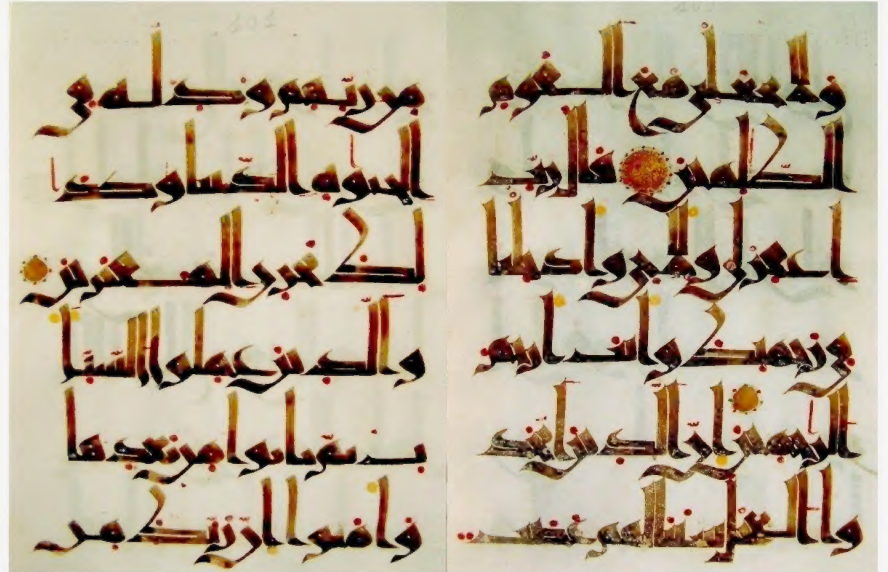 ولا تجعلنى مع القوم
الظلمين قال رب
اغفر لى ولاخى وادخلنا
فى رحمتك وانت ارحم
الرحمين ان الذين اتخذ
وا العجل سينالهم غضب
من ربهم وذلة فى
الحيوة الدنيا وكذ
لك نجزى المفترين
والذين عملوا السيا
ت ثم تابوا من بعدها
وامنوا ان ربك من